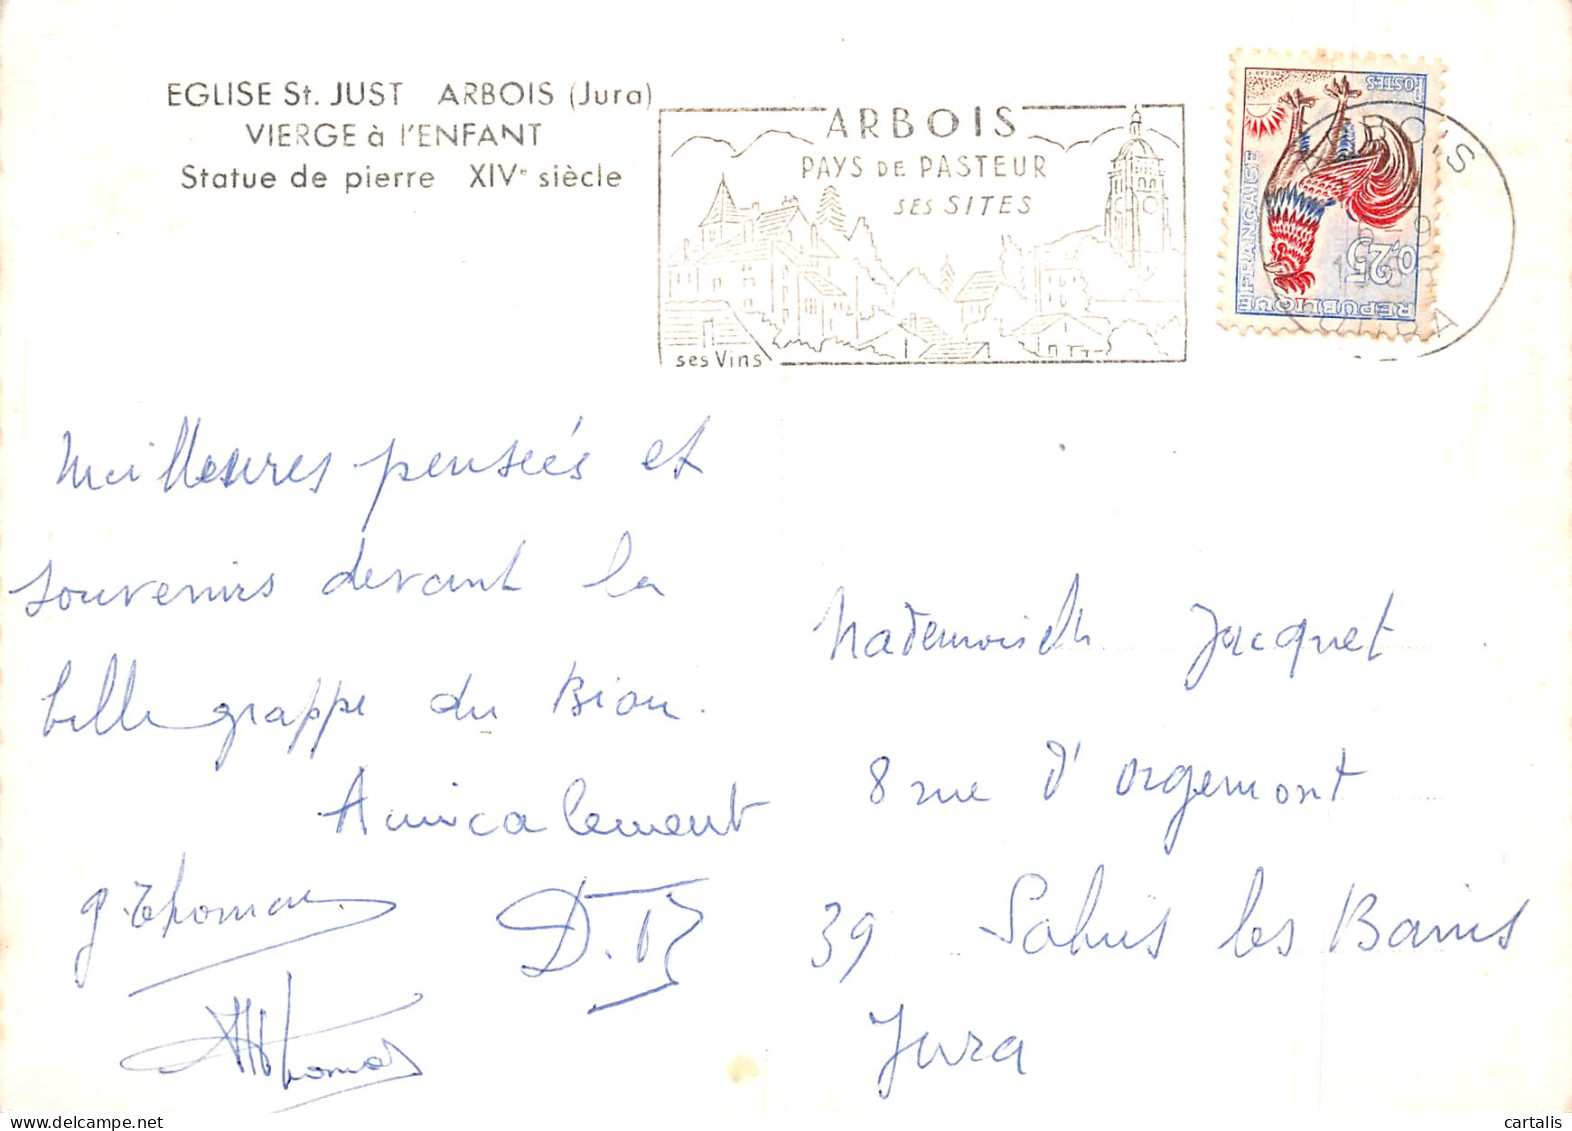 EGLISE St. JUST ARBOIS (Jura)
VIERGE à l'ENFANT
Statue de pierre XIVe siècle
ARBOIS
PAYS DE PASTEUR
SES SITES
ses Vins
POSTES
REPUBLIQUE FRANÇAISE
0,25
JURA
Meilleures pensées et
souvenirs devant la
belle grappe du Biou.
Amicalement
g. Thomas
D.
Thomas
Mademoiselle Jacquet
8 rue d'Orgemont
39 Salins les Bains
Jura
cartalis